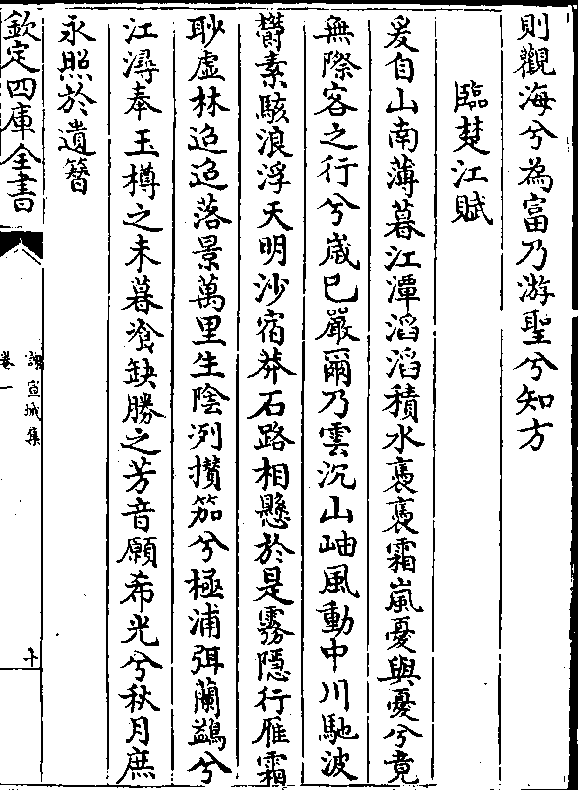 則觀海兮為富乃游聖兮知方
臨楚江賦
爰自山南薄暮江潭滔滔積水裊裊霜嵐憂與憂兮竟
無際客之行兮歲已嚴爾乃雲沉山岫風動中川馳波
鬱素駭浪浮天明沙宿莽石路相懸於是霧隱行雁霜
眇虛林迢迢落景萬里生陰洌攢笳兮極浦弭蘭鷁兮
江潯奉玉樽之未暮飡缺勝之芳音願希光兮秋月庶
永照於遺簪
欽定四庫全書
謝宣城集
卷一
十